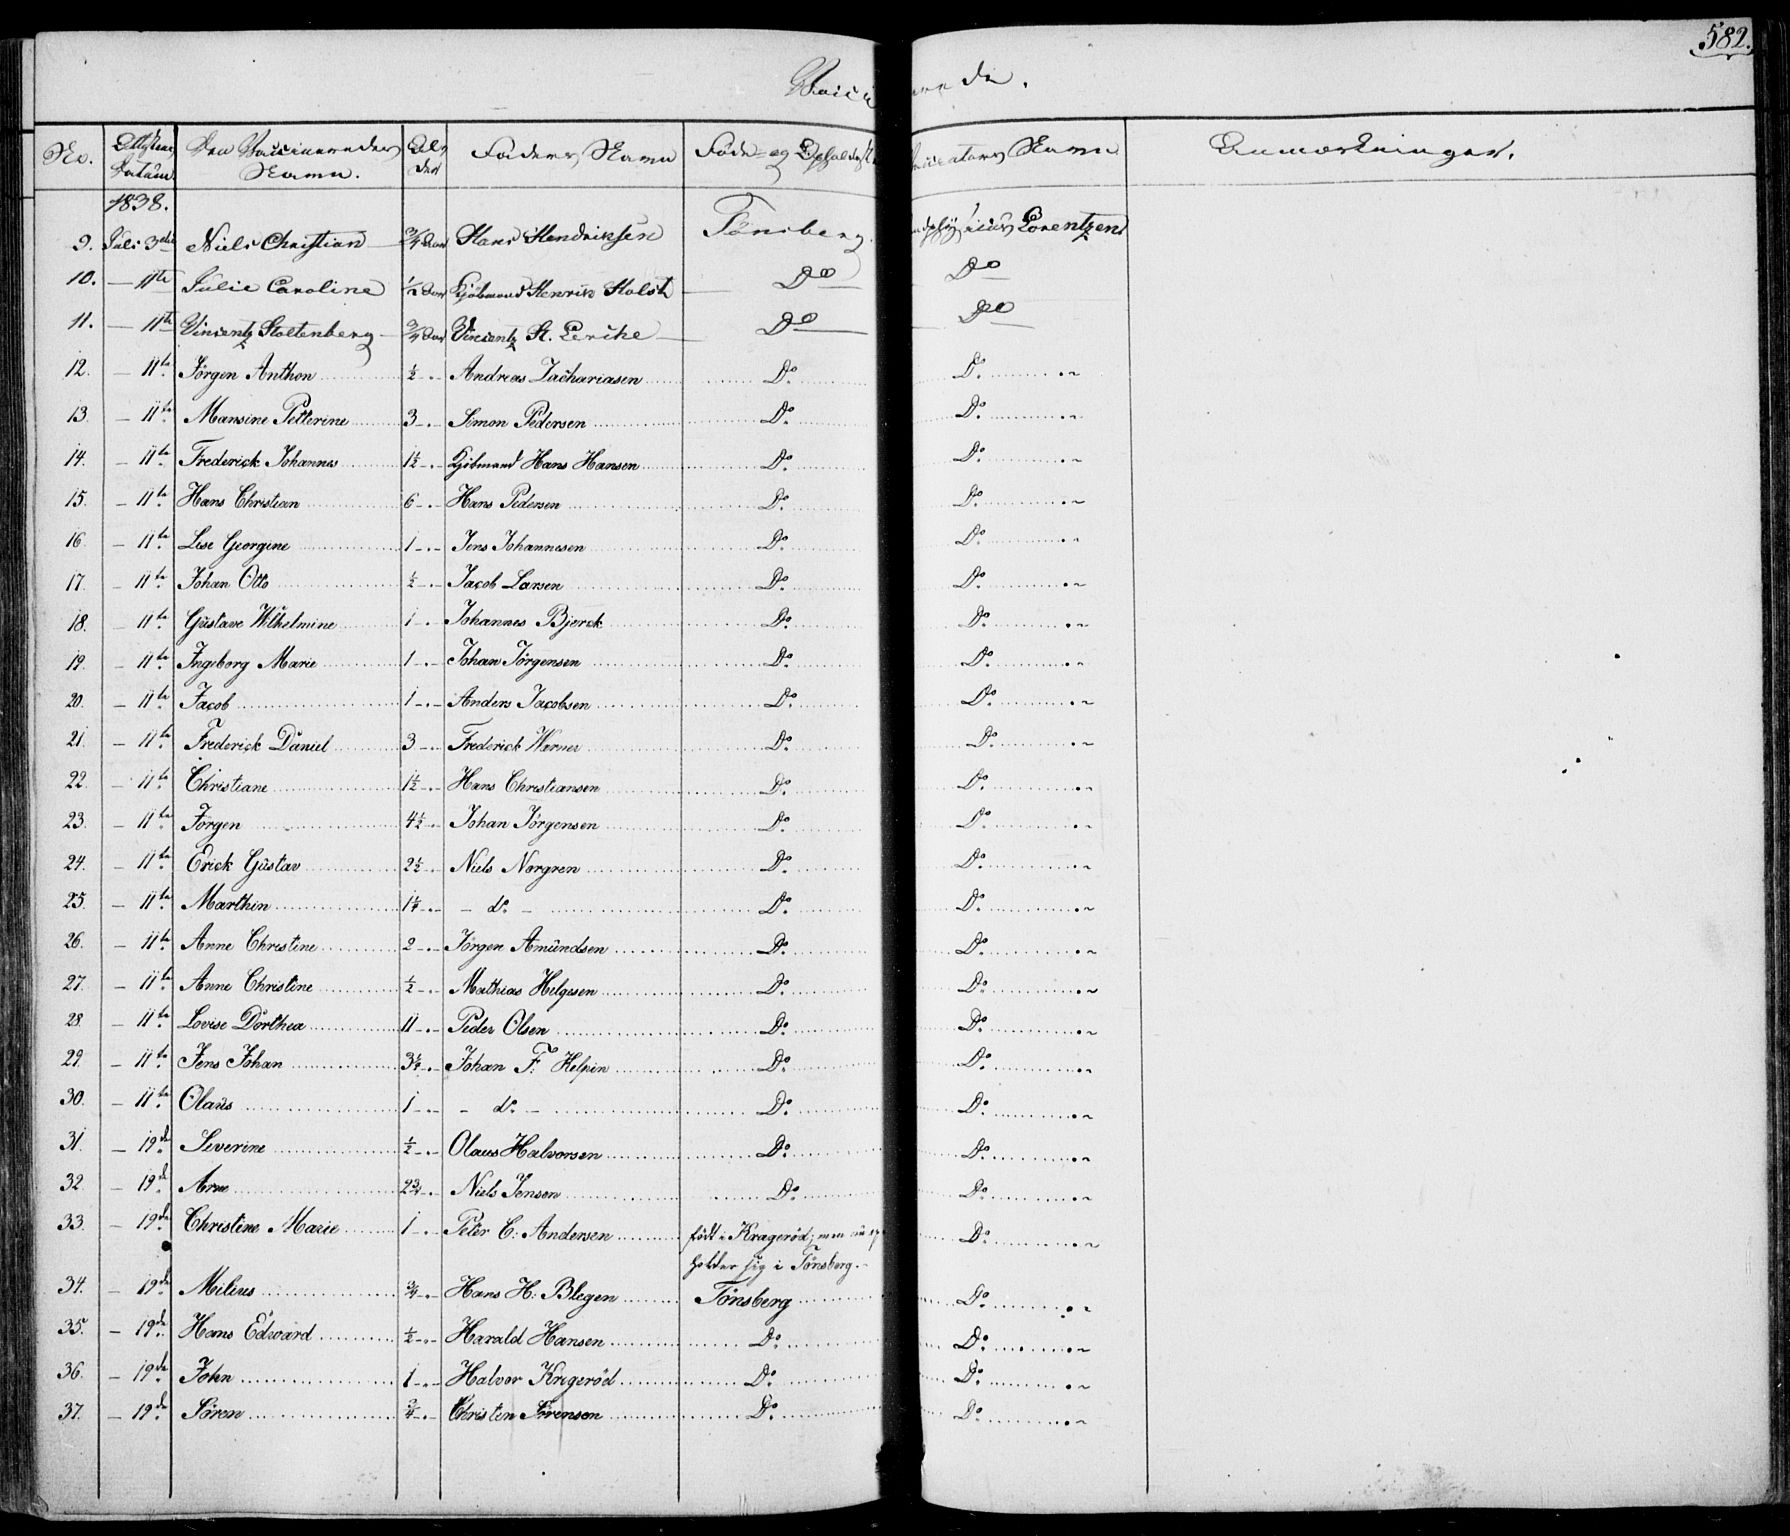 582.
No. Attestens Datum Den Vaccineredes Navn. Alder Faders Navn Føde- og Opholdsst Navn Anmærkninger.
1838.
9. Juli 3die Niels Christian 3/4 Aar Hans Hendriksen Tønsberg Lorentzen
10. — 11te Julie Caroline 1/2 Aar Kjøbmand Henrik Holst Do Do
11. — 11te Vincentz Stoltenberg 3/4 Aar Vincentz St. Lerche Do Do
12. — 11te Jørgen Anthon 1/2 - Andreas Zachariasen Do Do
13 — 11te Mansine Petterine 3 - Simon Pedersen Do Do
14. — 11te Frederick Johannes 1 1/2 - Kjøbmand Hans Hansen Do Do
15. — 11te Hans Christian 6 - Hans Pedersen Do Do
16 — 11te Lise Georgine 1 - Jens Johannesen Do Do
17. — 11te Johan Otto 1/2 - Jacob Larsen Do Do
18. — 11te Gustave Wilhelmine 1 - Johannes Bjerck Do Do
19. — 11te Ingeborg Marie 1 - Johan Jørgensen Do Do
20. — 11te Jacob 1 - Anders Jacobsen Do Do
21. — 11te Frederick Daniel 3 - Frederick Werner Do Do
22. — 11te Christiane 1 1/2 - Hans Christiansen Do Do
23. — 11te Jørgen 4 1/2 - Johan Jørgensen Do Do
24. — 11te Erick Gustav 2 1/2 - Niels Norgren Do Do
25. — 11te Marthin 1 1/4 - - do - Do Do
26. — 11te Anne Christine 2 - Jørgen Amundsen Do Do
27. — 11te Anne Christine 1/2 - Mathias Helgesen Do Do
28. — 11te Lovise Dorthea 11 - Peder Olsen Do Do
29. — 11te Jens Johan 3 1/4 - Johan F. Helpin Do Do
30. — 11te Olaus 1 - - do - Do Do
31. — 19de Severine 1/2 - Olaus Halvorsen Do Do
32. — 19de Arne 2 3/4 - Niels Jensen Do Do
33. — 19de Christine Marie 1 - Peter C. Andersen født i Kragerød; men nu op Do
holder sig i Tønsberg.
34. — 19de Milius 3/4 - Hans H. Blegen Tønsberg Do
35. — 19de Hans Edward 1/2 - Harald Hansen Do Do
36. — 19de John 1 - Halvor Krigerød Do Do
37. — 19de Søren 3/4 - Christen Sørensen Do Do